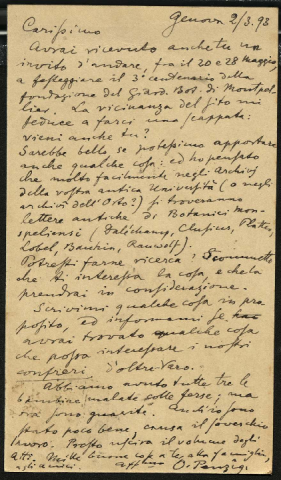 Genova 2/3.93
Carissimo
Avrai ricevuto anche tu un
invito d'andare, fra il 20 e 28 Maggio,
a festeggiare il 3° centenario della
fondazione del Giard. Bot. di Montpel-
lier. La vicinanza del sito mi
seduce a farci una scappata:
vieni anche tu?
Sarebbe bello se potessimo apportare
anche qualche cosa: ed ho pensato
che molto facilmente negli Archivj
della vostra antica Università (o negli
archivj dell'Orto?) si troveranno
lettere antiche di Botanici Mon-
speliensi (Dalechamp, Clusius, Platter,
Lobel, Bauhin, Rauwolf).
Potresti farne ricerca? Scommetto
che ti interessa la cosa, e che la
prendrai in considerazione.
Scrivimi qualche cosa in pro
posito, ed informami se
avrai trovato qualche cosa
che possa interessare i nostri
confrères d'oltre Varo.
Abbiamo avuto tutte tre le
bambine malate colle ferse; ma
ora sono guarite. Anch'io sono
stato poco bene, causa il soverchio
lavoro. Presto uscirà il volume degli
Atti. Mille buone cose a te, alla famiglia,
agli amici. affmo O. Penzig.